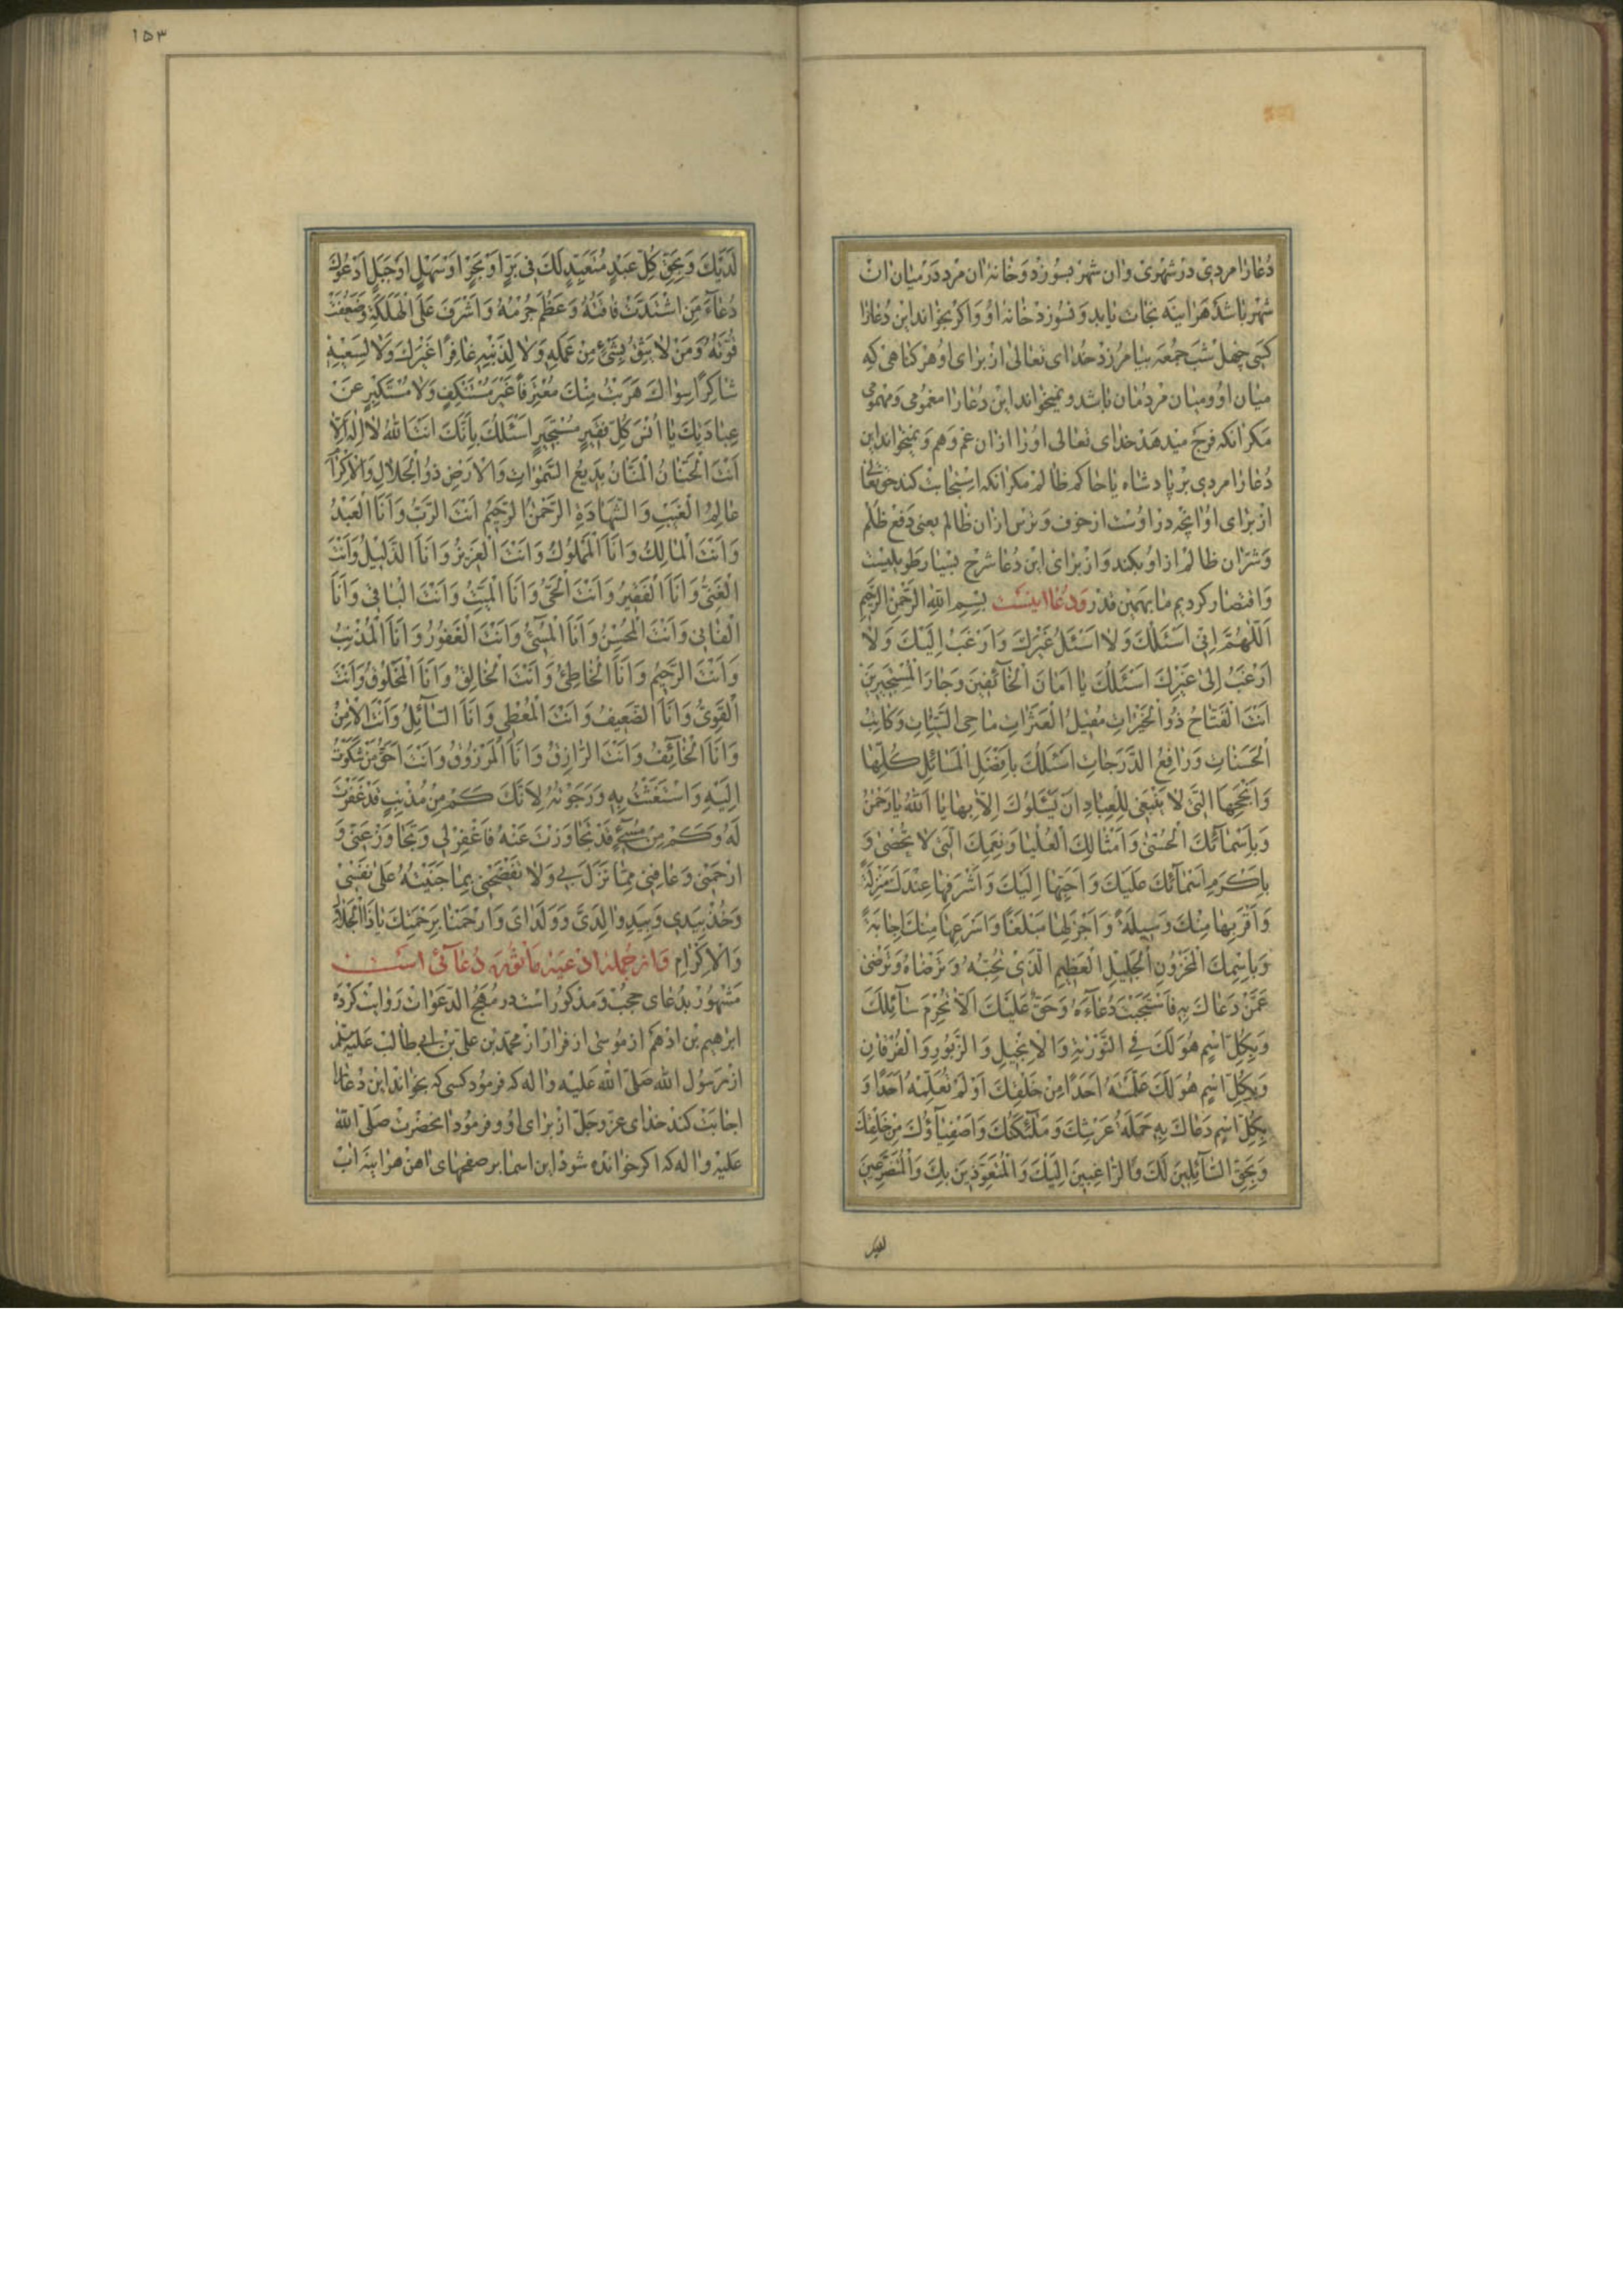 دُعا را مردی در شهری و ان شهر بسوزد و خانهٔ ان مرد در میان ان
شهر باشد هراینه نجات یابد و نسوزد خانهٔ او و اکر بخواند این دُعا را
کسی چهل شب جمعه بیامرزد خدای تعالی از برای او هر کناهی که
میان او و میان مردمان باشد و نمیخواند این دُعا را مغمومی و مهمومی
مکر انکه فرج میدهد خدای تعالی او را از ان غم و هم و نمیخواند این
دُعا را مردی بر پادشاه یا حاکم ظالم مکر انکه استجابت کند حق تعالی
از برای او انچه در اوست از خوف و ترس از ان ظالم یعنی دفع ظلم
و شر ان ظالم از او بکند و از برای این دُعا شرح بسیار طویلیست
و اقتصار کردیم ما بهمین قدر و دُعا اینست بِسْمِ اللّٰهِ الرَّحْمٰنِ الرَّحِيمِ
اَللّٰهُمَّ اِنّي اَسْئَلُكَ وَلاٰ اَسْئَلُ غَيْرَكَ وَاَرْغَبُ اِلَيْكَ وَلاٰ
اَرْغَبُ اِلىٰ غَيْرِكَ اَسْئَلُكَ يا اَمانَ الْخآئِفينَ وَجارَ الْمُسْتَجيرينَ
اَنْتَ الْفَتّاحُ ذُو الْخَيْراتِ مُقيلُ الْعَثَراتِ ماحِي السَّيِّئاتِ وَكاتِبُ
الْحَسَناتِ وَرافِعُ الدَّرَجاتِ اَسْئَلُكَ بِاَفْضَلِ الْمَسآئِلِ كُلِّها
وَاَنْجَحِهَا الَّتي لا يَنْبَغي لِلْعِبادِ اَنْ يَسْئَلُوكَ اِلّا بِها يا اَللّٰهُ يا رَحْمٰنُ
وَبِاَسْمآئِكَ الْحُسْنىٰ وَاَمْثالِكَ الْعُلْيا وَنِعَمِكَ الَّتي لا تُحْصىٰ وَ
بِاَكْرَمِ اَسْمآئِكَ عَلَيْكَ وَاَحَبِّها اِلَيْكَ وَاَشْرَفِها عِنْدَكَ مَنْزِلَةً
وَاَقْرَبِها مِنْكَ وَسيلَةً وَاَجْزَلِها مَبْلَغًا وَاَسْرَعِها مِنْكَ اِجابَةً
وَبِاسْمِكَ الْمَخْزُونِ الْجَليلِ الْعَظيمِ الَّذي تُحِبُّهُ وَتَرْضاهُ وَتَرْضىٰ
عَمَّنْ دَعاكَ بِهِ فَاسْتَجَبْتَ دُعآءَهُ وَحَقٌّ عَلَيْكَ اَلّا تَحْرِمَ سآئِلَكَ
وَبِكُلِّ اسْمٍ هُوَ لَكَ فِي التَّوْرٰيةِ وَالْاِنْجيلِ وَالزَّبُورِ وَالْفُرْقانِ
وَبِكُلِّ اسْمٍ هُوَ لَكَ عَلَّمْتَهُ اَحَدًا مِنْ خَلْقِكَ اَوْ لَمْ تُعَلِّمْهُ اَحَدًا وَ
بِكُلِّ اسْمٍ دَعاكَ بِهِ حَمَلَةُ عَرْشِكَ وَمَلآئِكَتُكَ وَاَصْفِيآؤُكَ مِنْ خَلْقِكَ
وَبِحَقِّ السّآئِلينَ لَكَ وَالرّاغِبينَ اِلَيْكَ وَالْمُتَعَوِّذينَ بِكَ وَالْمُتَضَرِّعينَ
١٥٣
لَدَيْكَ وَبِحَقِّ كُلِّ عَبْدٍ مُتَعَبِّدٍ لَكَ في بَرٍّ اَوْ بَحْرٍ اَوْ سَهْلٍ اَوْ جَبَلٍ اَدْعُوكَ
دُعآءَ مَنِ اشْتَدَّتْ فاقَتُهُ وَعَظُمَ جُرْمُهُ وَاَشْرَفَ عَلَى الْهَلَكَةِ وَضَعُفَتْ
قُوَّتُهُ وَمَنْ لا يَثِقُ بِشَيْءٍ مِنْ عَمَلِهِ وَلا لِذَنْبِهِ غافِرًا غَيْرَكَ وَلا لِسَعْيِهِ
شاكِرًا سِواكَ هَرَبْتُ مِنْكَ مُعْتَرِفًا غَيْرَ مُسْتَنْكِفٍ وَلا مُسْتَكْبِرٍ عَنْ
عِبادَتِكَ يا اُنْسَ كُلِّ فَقيرٍ مُسْتَجيرٍ اَسْئَلُكَ بِاَنَّكَ اَنْتَ اللّٰهُ لا اِلٰهَ اِلّا
اَنْتَ الْحَنّانُ الْمَنّانُ بَديعُ السَّمٰواتِ وَالْاَرْضِ ذُو الْجَلالِ وَالْاِكْرامِ
عالِمُ الْغَيْبِ وَالشَّهادَةِ الرَّحْمٰنُ الرَّحيمُ اَنْتَ الرَّبُّ وَاَنَا الْعَبْدُ
وَاَنْتَ الْمالِكُ وَاَنَا الْمَمْلُوكُ وَاَنْتَ الْعَزيزُ وَاَنَا الذَّليلُ وَاَنْتَ
الْغَنِيُّ وَاَنَا الْفَقيرُ وَاَنْتَ الْحَيُّ وَاَنَا الْمَيِّتُ وَاَنْتَ الْباقي وَاَنَا
الْفاني وَاَنْتَ الْمُحْسِنُ وَاَنَا الْمُسيٓءُ وَاَنْتَ الْغَفُورُ وَاَنَا الْمُذْنِبُ
وَاَنْتَ الرَّحيمُ وَاَنَا الْخاطِئُ وَاَنْتَ الْخالِقُ وَاَنَا الْمَخْلُوقُ وَاَنْتَ
الْقَوِيُّ وَاَنَا الضَّعيفُ وَاَنْتَ الْمُعْطي وَاَنَا السّآئِلُ وَاَنْتَ الْاَمينُ
وَاَنَا الْخآئِفُ وَاَنْتَ الرّازِقُ وَاَنَا الْمَرْزُوقُ وَاَنْتَ اَحَقُّ مَنْ شَكَوْتُ
اِلَيْهِ وَاسْتَغَثْتُ بِهِ وَرَجَوْتُهُ لِاَنَّكَ كَمْ مِنْ مُذْنِبٍ قَدْ غَفَرْتَ
لَهُ وَكَمْ مِنْ مُسيٓءٍ قَدْ تَجاوَزْتَ عَنْهُ فَاغْفِرْ لي وَتَجاوَزْ عَنّي وَ
ارْحَمْني وَعافِني مِمّا نَزَلَ بي وَلا تَفْضَحْني بِما جَنَيْتُهُ عَلىٰ نَفْسي
وَخُذْ بِيَدي وَبِيَدِ والِدَيَّ وَوَلَدايَ وَارْحَمْنا بِرَحْمَتِكَ يا ذَا الْجَلالِ
وَالْاِكْرامِ و از جملهٔ ادعیه ماثوره دُعآئی است
مشهور بدُعای حجب و مذکور است در مهج الدعوات روایت کرده
ابرهیم بن ادهم از موسی از فرار از محمد بن علی بن ابی طالب علیه السلم
از رسول اللّٰه صلی اللّٰه علیه واله که فرمود کسی که بخواند این دُعا را
اجابت کند خدای عز وجل از برای او و فرمود انحضرت صلی اللّٰه
علیه واله که اکر خوانده شود این اسما بر صفحهای اهن هراینه اب